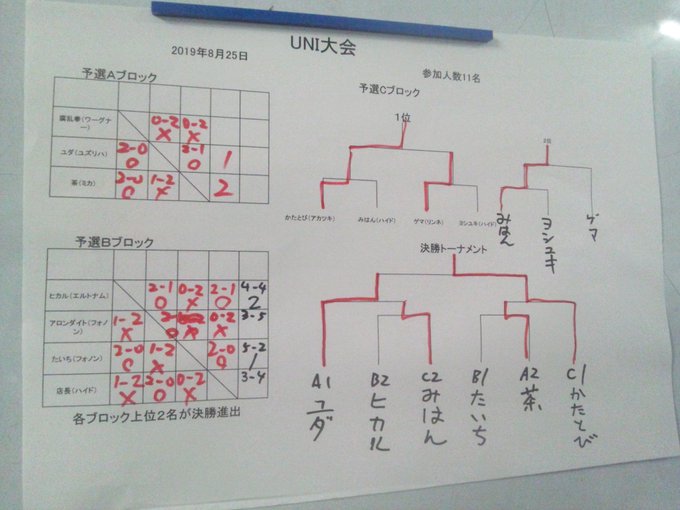 UNI大会
2019年8月25日
参加人数11名
予選Aブロック
腐乱拳(ワーグナー)
0-2 0-2
X X
ユダ(ユズリハ)
2-0 2-1
O O 1
茶(ミカ)
2-0 1-2
O X 2
予選Bブロック
ヒカル(エルトナム)
2-1 0-2 2-1 4-4
O X O 2
アロンダイト(フォノン)
1-2 0-2 3-5
X X
たいち(フォノン)
2-0 1-2 2-0 5-2
O X O 1
店長(ハイド)
1-2 2-0 0-2 3-4
X O X
各ブロック上位2名が決勝進出
予選Cブロック
1位
かたとび(アカツキ)
みはん(ハイド)
ゲマ(リンネ)
ヨシユキ(ハイド)
2位
みはん
ヨシユキ
ゲマ
決勝トーナメント
A1 ユダ
B2 ヒカル
C2 みはん
B1 たいち
A2 茶
C1 かたとび